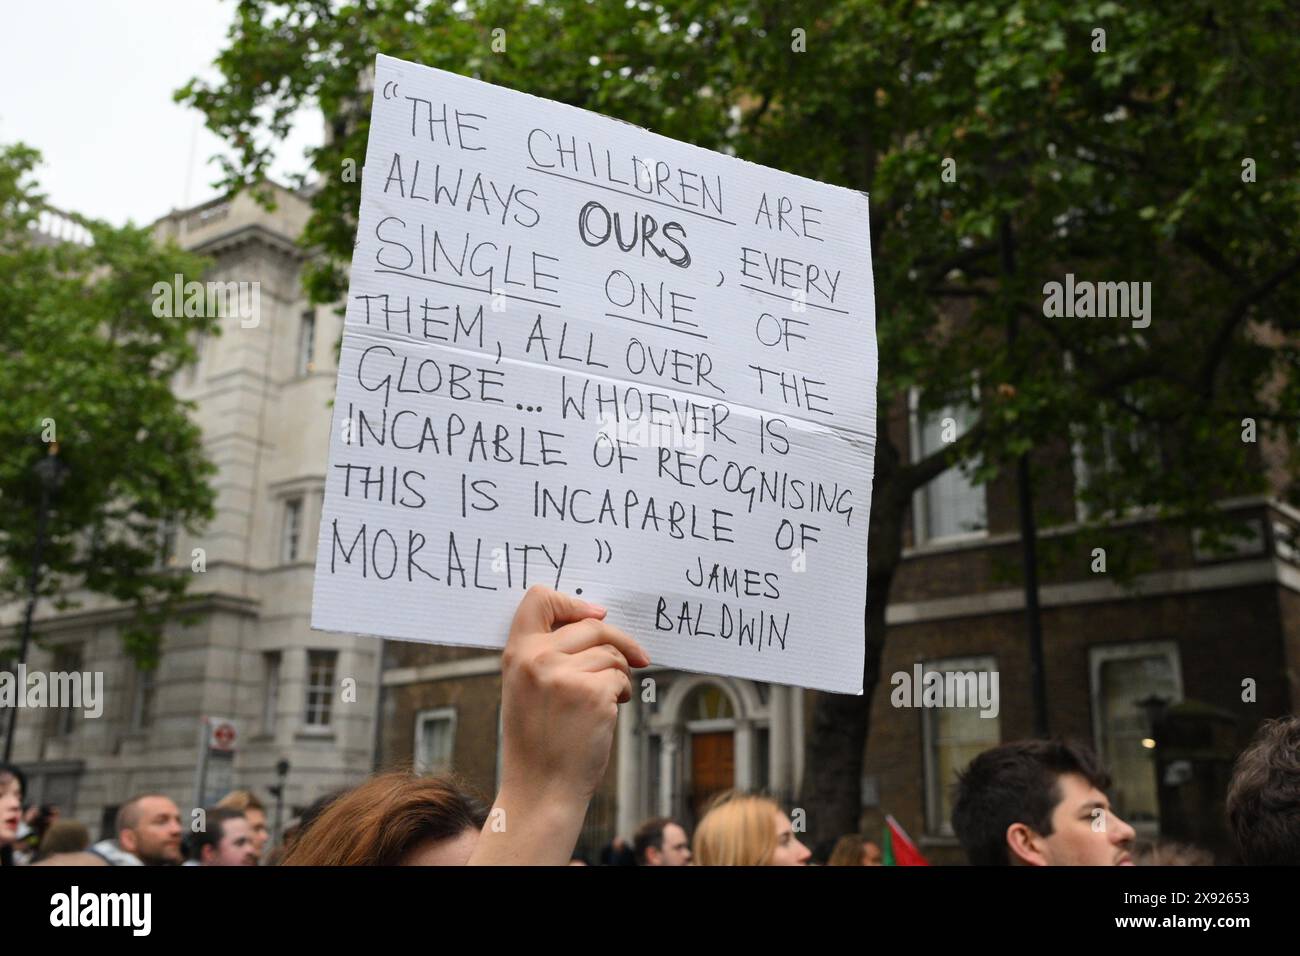 “THE CHILDREN ARE
ALWAYS OURS, EVERY
SINGLE ONE OF
THEM, ALL OVER THE
GLOBE... WHOEVER IS
INCAPABLE OF RECOGNISING
THIS IS INCAPABLE OF
MORALITY.”
JAMES
BALDWIN
alamy
alamy
Image ID: 2X92653
www.alamy.com